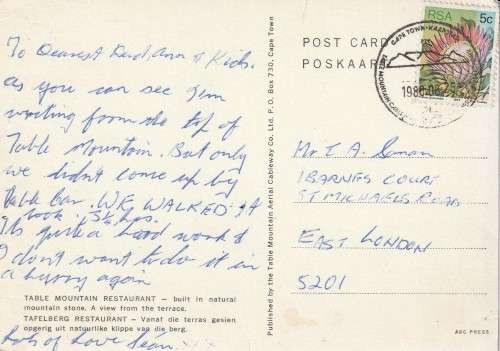 To Dearest Dad, Ann & Kids.
As you can see I'm
writing from the top of
Table Mountain. But only
we didn't come up by
Table Car. WE WALKED It
took 3½ hrs.
Its quite a hard work &
I dont want to do it in
a hurry again
TABLE MOUNTAIN RESTAURANT – built in natural
mountain stone. A view from the terrace.
TAFELBERG RESTAURANT – Vanaf die terras gesien
opgerig uit natuurlike klippe van die berg.
Lots of Love Sean. xxx
Published by the Table Mountain Aerial Cableway Co. Ltd. P.O. Box 730, Cape Town
POST CARD
POSKAART
RSA 5c
CAPE TOWN
TABLE MOUNTAIN
1980
Mr I A
1 BARNES COURT
ST MICHAELS ROAD
EAST LONDON
5201
ABC PRESS